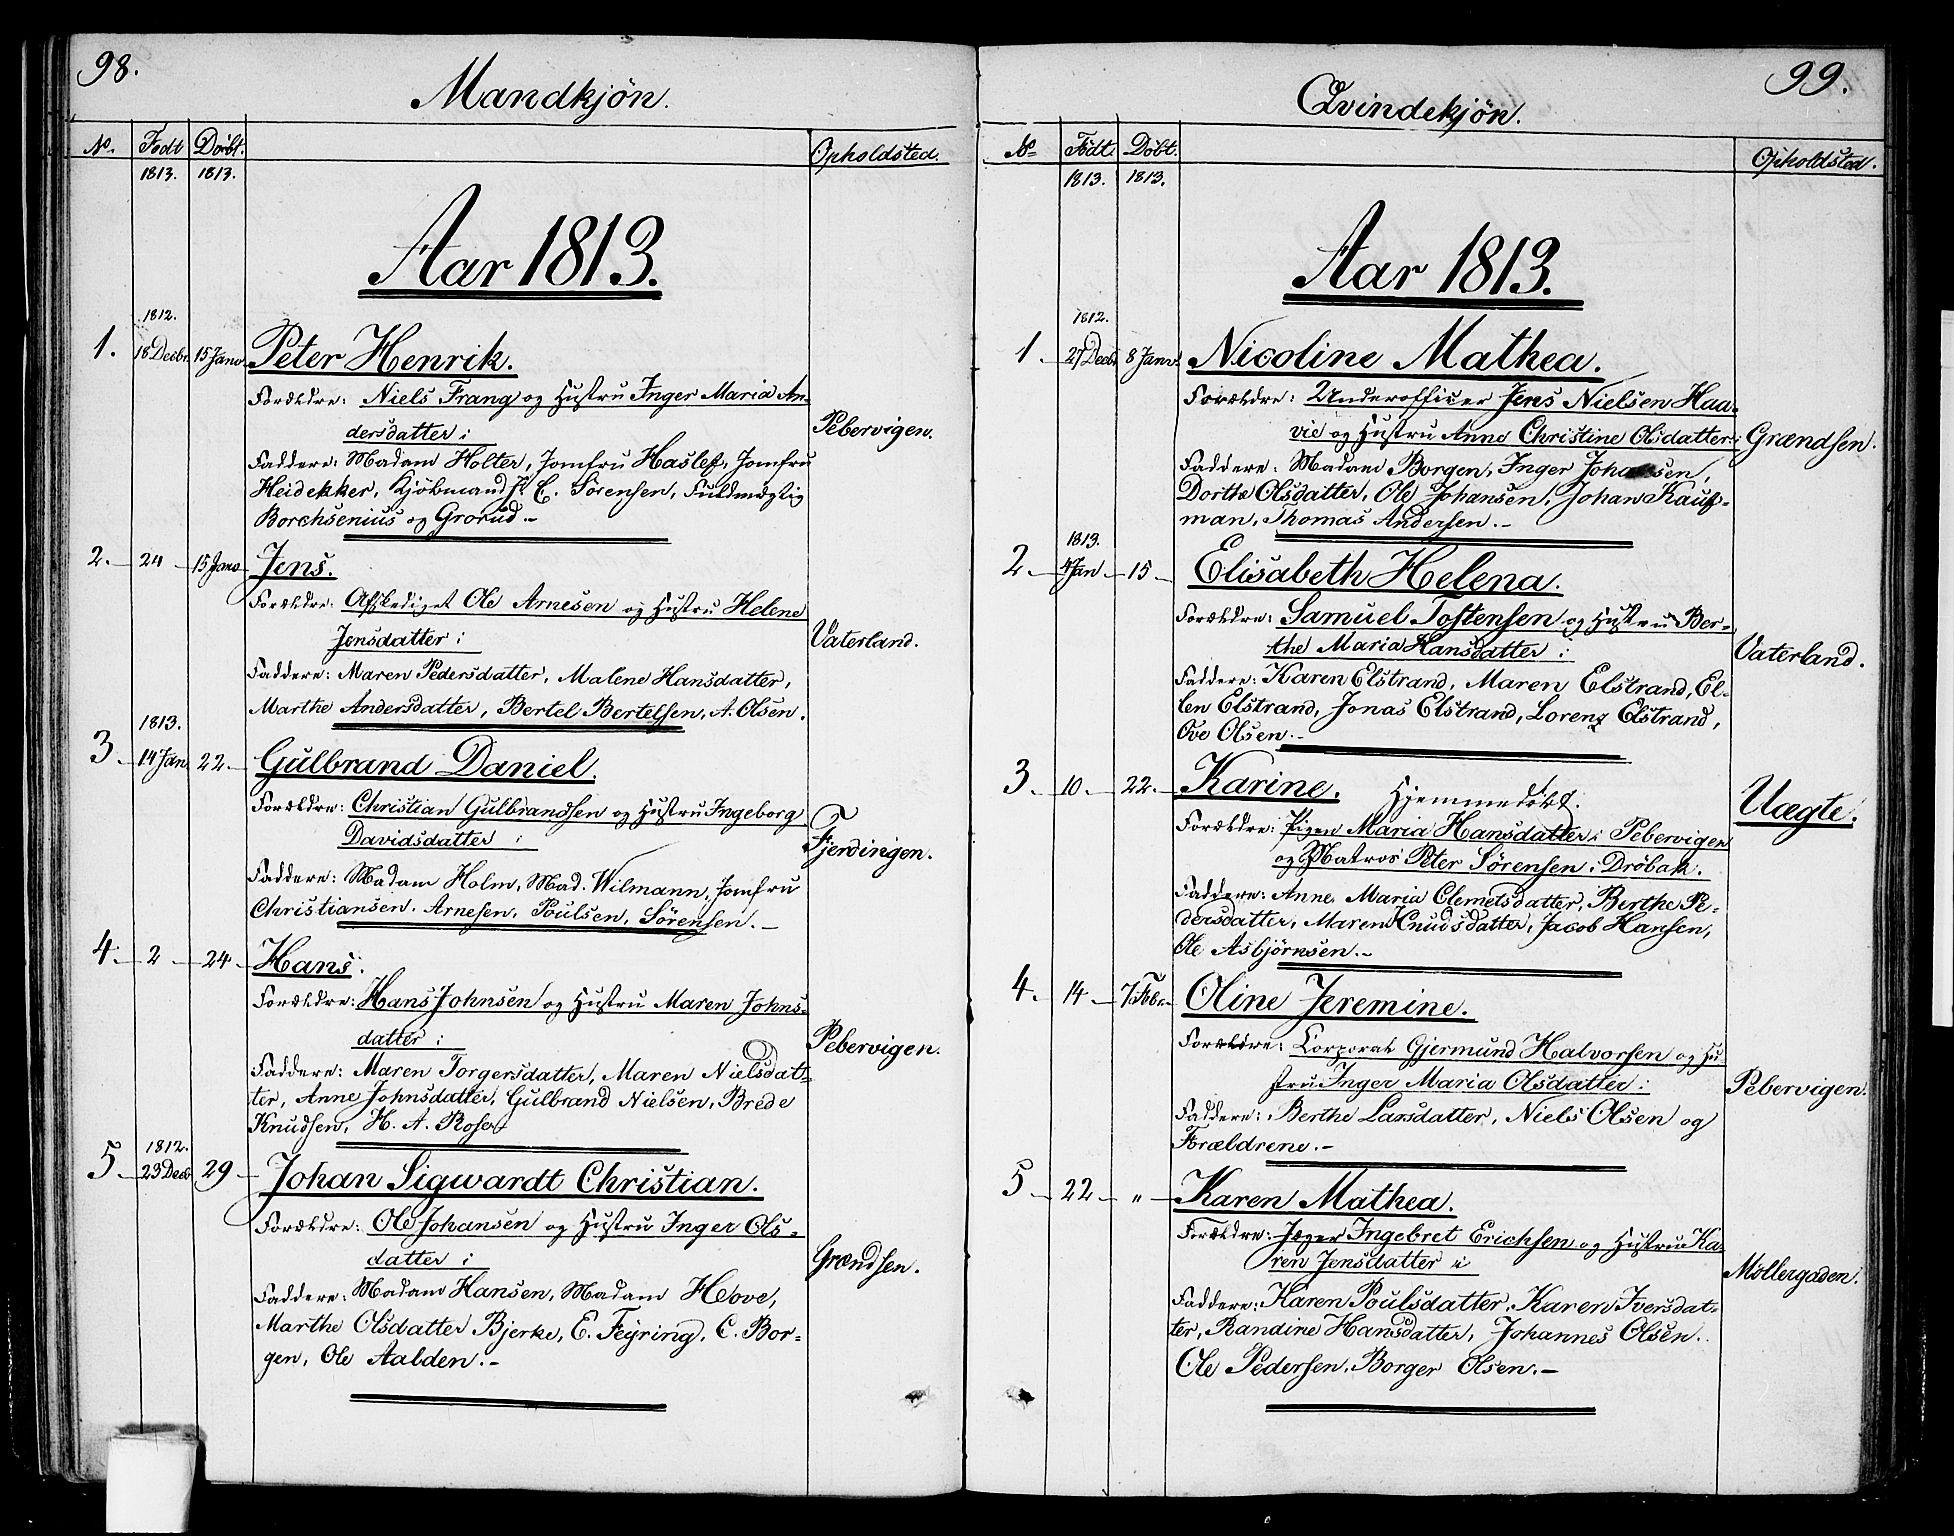 98.
Mandkjön.
No. Födt Döbt. Opholdsted.
1813. 1813.
Aar 1813.
1812.
1. 18 Decbr. 15 Janv. Peter Henrik.
Forældre: Niels Frang og Hustru Inger Maria An-
dersdatter:
Pebervigen.
Faddere: Madam Holter, Jomfru Haslef, Jomfru
Heidekker, Kjöbmand E. Sörensen, Fuldmægtig
Borchsenius og Grorud.-
2.- 24 - 15 Janv Jens.
Forældre: Afskediget Ole Arnesen og Hustru Helene
Jensdatter:
Vaterland.
Faddere: Maren Pedersdatter, Malene Hansdatter,
Marthe Andersdatter, Bertel Bertelsen, A. Olsen.
1813.
3 - 14 Jan. 22.- Gulbrand Daniel.
Forældre: Christian Gulbrandsen og Hustru Ingeborg
Davidsdatter:
Fjerdingen.
Faddere: Madam Holm, Mad. Wilmann, Jomfru
Christiansen, Arnesen, Poulsen, Sörensen.-
4.- 2 - 24- Hans.
Forældre: Hans Johnsen og Hustru Maren Johns-
datter:
Pebervigen.
Faddere: Maren Torgersdatter, Maren Nielsdat-
ter, Anne Johnsdatter, Gulbrand Nielsen, Brede
Knudsen, H. A. Rosen
1812.
5- 23 Decb 29- Johan Sigwardt Christian.
Forældre: Ole Johansen og Hustru Inger Ols-
datter:
Grændsen.
Faddere: Madam Hansen, Madam Hove,
Marthe Olsdatter Bjerke, E. Feyring, C. Bor-
gen, Ole Aalden.-
99.
Qvindekjön.
No Födt. Döbt. Opholdsted.
1813. 1813.
Aar 1813.
1812.
1- 27 Decb 8 Janv. Nicoline Mathea.
Forældre: Underofficer Jens Nielsen Haa-
vie og Hustru Anne Christine Olsdatter:
Grændsen.
Faddere: Madam Borgen, Inger Johansen,
Dorthe Olsdatter, Ole Johansen, Johan Kauf-
man, Thomas Andersen.-
1813.
2- 4 Jan - 15- Elisabeth Helena.
Forældre: Samuel Tostensen og Hustru Ber-
the Maria Hansdatter:
Vaterland.
Faddere: Karen Elstrand, Maren Elstrand, El-
len Elstrand, Jonas Elstrand, Lorenz Elstrand,
Ove Olsen.-
3- 10- 22.- Karine. Hjemmedöbt.
Uægte.
Forældre: Pigen Maria Hansdatter i Pebervigen
og Matros Peter Sörensen i Dröbak.
Faddere: Anne Maria Clemetsdatter, Berthe Pe-
dersdatter, Maren Knudsdatter, Jacob Hansen,
Ole Asbjörnsen.-
4.- 14- 7 Febr.- Oline Jeremine.
Forældre: Corporal Gjermund Halvorsen og Hu-
stru Inger Maria Olsdatter:
Pebervigen.
Faddere: Berthe Larsdatter, Niels Olsen og
Forældrene.-
5- 22- " - Karen Mathea.
Forældre: Jæger Ingebret Erichsen og Hustru Ka-
ren Jensdatter i
Möllergaden.
Faddere: Karen Poulsdatter, Karen Iversdat-
ter, Randine Hansdatter, Johannes Olsen.
Ole Pedersen, Borger Olsen.-